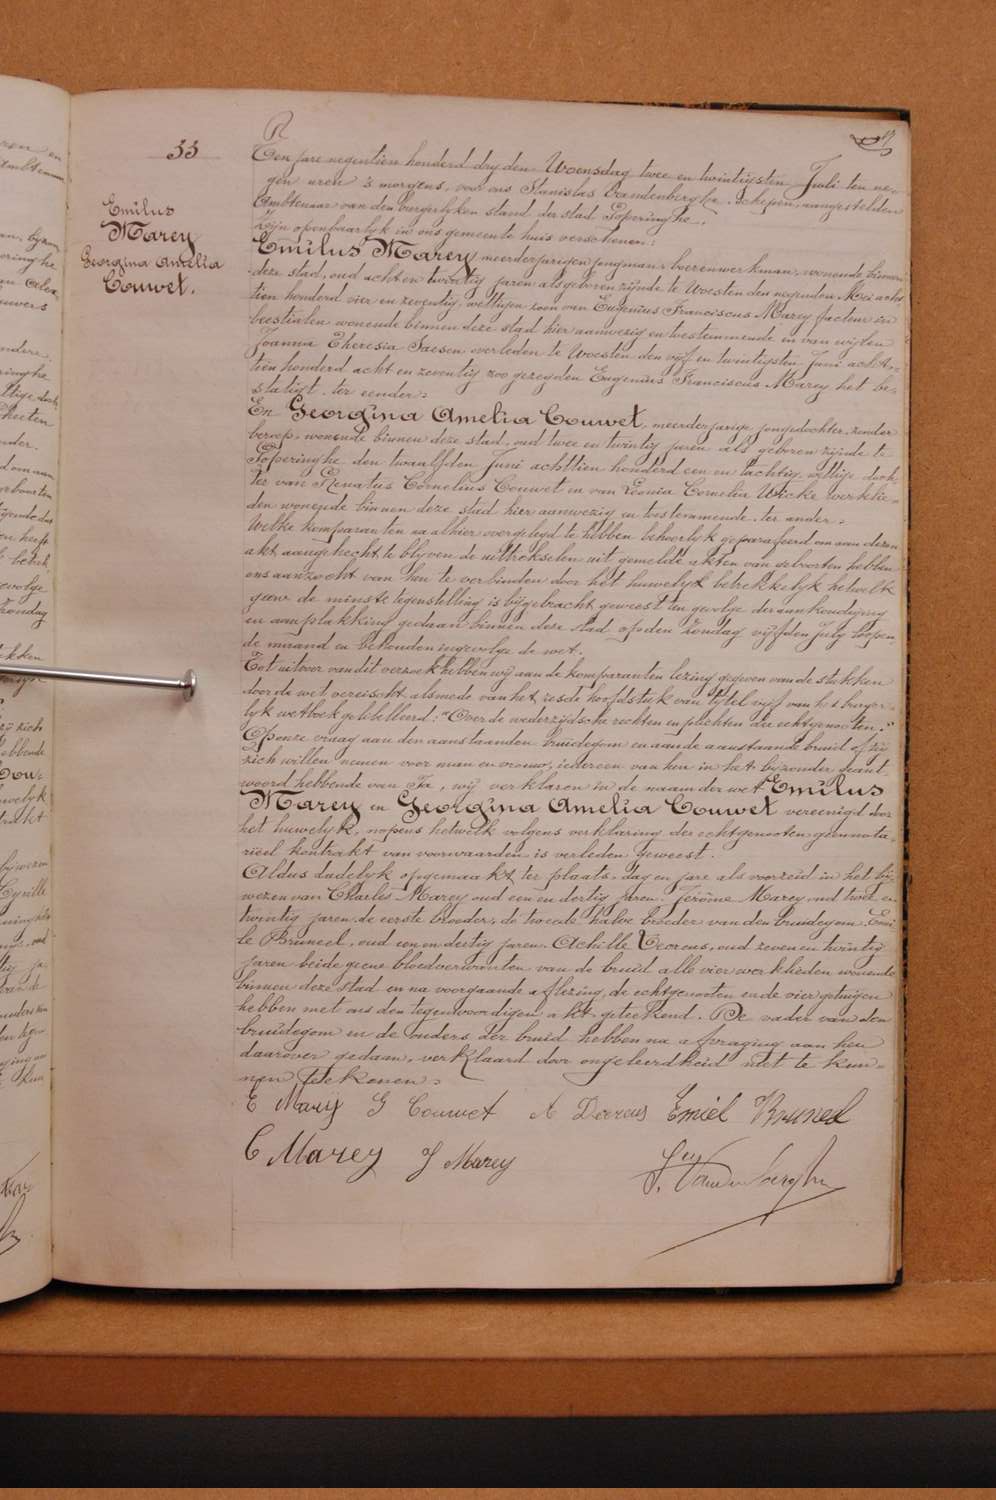 33
Emilus
Marey
Georgina Amelia
Couwet.
Ten jare negentien honderd dry den Woensdag twee en twintigsten Juli ten ne=
gen uren 's morgens, voor ons Stanislas Vandenberghe, schepen, aangestelden
Ambtenaar van den burgerlyken stand der stad Poperinghe.
Zijn openbaarlyk in ons gemeente huis verschenen:
Emilus Marey meerderjarigen jongman, boerenwerkman, wonende binnen
deze stad, oud acht en twintig jaren als geboren zijnde te Woesten den negenden Mei acht=
tien honderd vier en zeventig, wettigen zoon van Eugenius Franciscus Marey facteur in
beestialen wonende binnen deze stad hier aanwezig en toestemmende en van wijlen
Joanna Theresia Saesen overleden te Woesten den vijf en twintigsten Juni acht=
tien honderd acht en zeventig zoo gezeyden Eugenius Franciscus Marey het be=
statigt. ter eender=
En Georgina Amelia Couwet, meerderjarige jongedochter, zonder
beroep, wonende binnen deze stad, oud twee en twintig jaren als geboren zijnde te
Poperinghe den twaalfden Juni achttien honderd een en tachtig, wettige doch=
ter van Renatus Cornelius Couwet en van Leonia Cornelia Wicke werklie=
den wonende binnen deze stad hier aanwezig en toestemmende. ter ander=
Welke komparanten na alhier overgelegd te hebben behoorlyk geparafeerd om aan dezen
akt aangehecht te blyven de uittrekselen uit gemelde akten van geboorten hebben
ons aanzocht van hen te verbinden door het huwelyk betrekkelyk hetwelk
geene de minste tegenstelling is bijgebracht geweest ten gevolge der aankondiging
en aanplakking gedaan binnen deze stad op den zondag vijfden July loopen=
de maand en behouden ingevolge de wet.
Tot uitvoer van dit verzoek hebben wij aan de komparanten lezing gegeven van de stukken
door de wet vereischt alsmede van het zesde hoofdstuk van tytel vyf van het burger=
lyk wetboek gelibelleerd: "Over de wederzijdsche rechten en plichten der echtgenooten."
Op onze vraag aan den aanstaanden bruidegom en aan de aanstaande bruid of zij
zich willen nemen voor man en vrouw, iedereen van hen in het bijzonder geant=
woord hebbende van Ja, wij verklaren in de naam der wet Emilus
Marey en Georgina Amelia Couwet vereenigd door
het huwelyk, nopens hetwelk volgens verklaring der echtgenooten geen nota=
rieel kontrakt van voorwaarden is verleden geweest.
Aldus dadelyk opgemaakt ter plaats, dag en jare als voorzeid in het bij=
wezen van Charles Marey oud een en dertig jaren. Jérôme Marey oud twee en
twintig jaren, de eerste broeder, de tweede halve broeder van den bruidegom. Emi=
le Bruneel, oud een en dertig jaren. Achille oud zeven en twintig
jaren beide geene bloedverwanten van de bruid alle vier werklieden wonende
binnen deze stad en na voorgaande aflezing, de echtgenooten en de vier getuigen
hebben met ons den tegenwoordigen akt geteekend. De vader van den
bruidegom en de ouders der bruid hebben na afvraging aan hen
daarover gedaan, verklaard door ongeleerdheid niet te kun=
nen teekenen=
E Marey G Couwet A Emiel Bruneel
C Marey J Marey
S. Vandenberghe